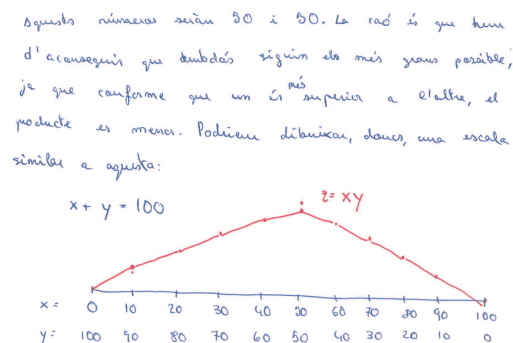 Aquests números seràn 50 i 50. La raó és que hem
d'aconseguir que ambdós siguin els més grans possible,
ja que conforme que un és més superior a l'altre, el
producte es menor. Podriem dibuixar, doncs, una escala
similar a aquesta:
x + y = 100
z = xy
x = 0 10 20 30 40 50 60 70 80 90 100
y: 100 90 80 70 60 50 40 30 20 10 0